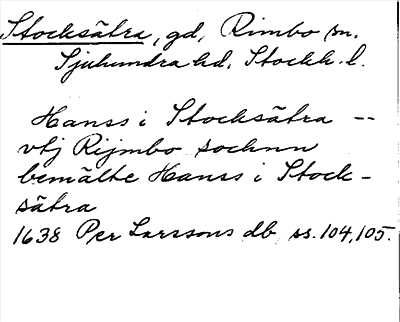 Stocksätra, gd, Rimbo sn.
Sjuhundra hd. Stockh. l.
Hanss i Stocksätra --
vtj Rijmbo sochnn
bemälte Hanss i Stock-
sätra
1638 Per Larssons db ss. 104, 105.